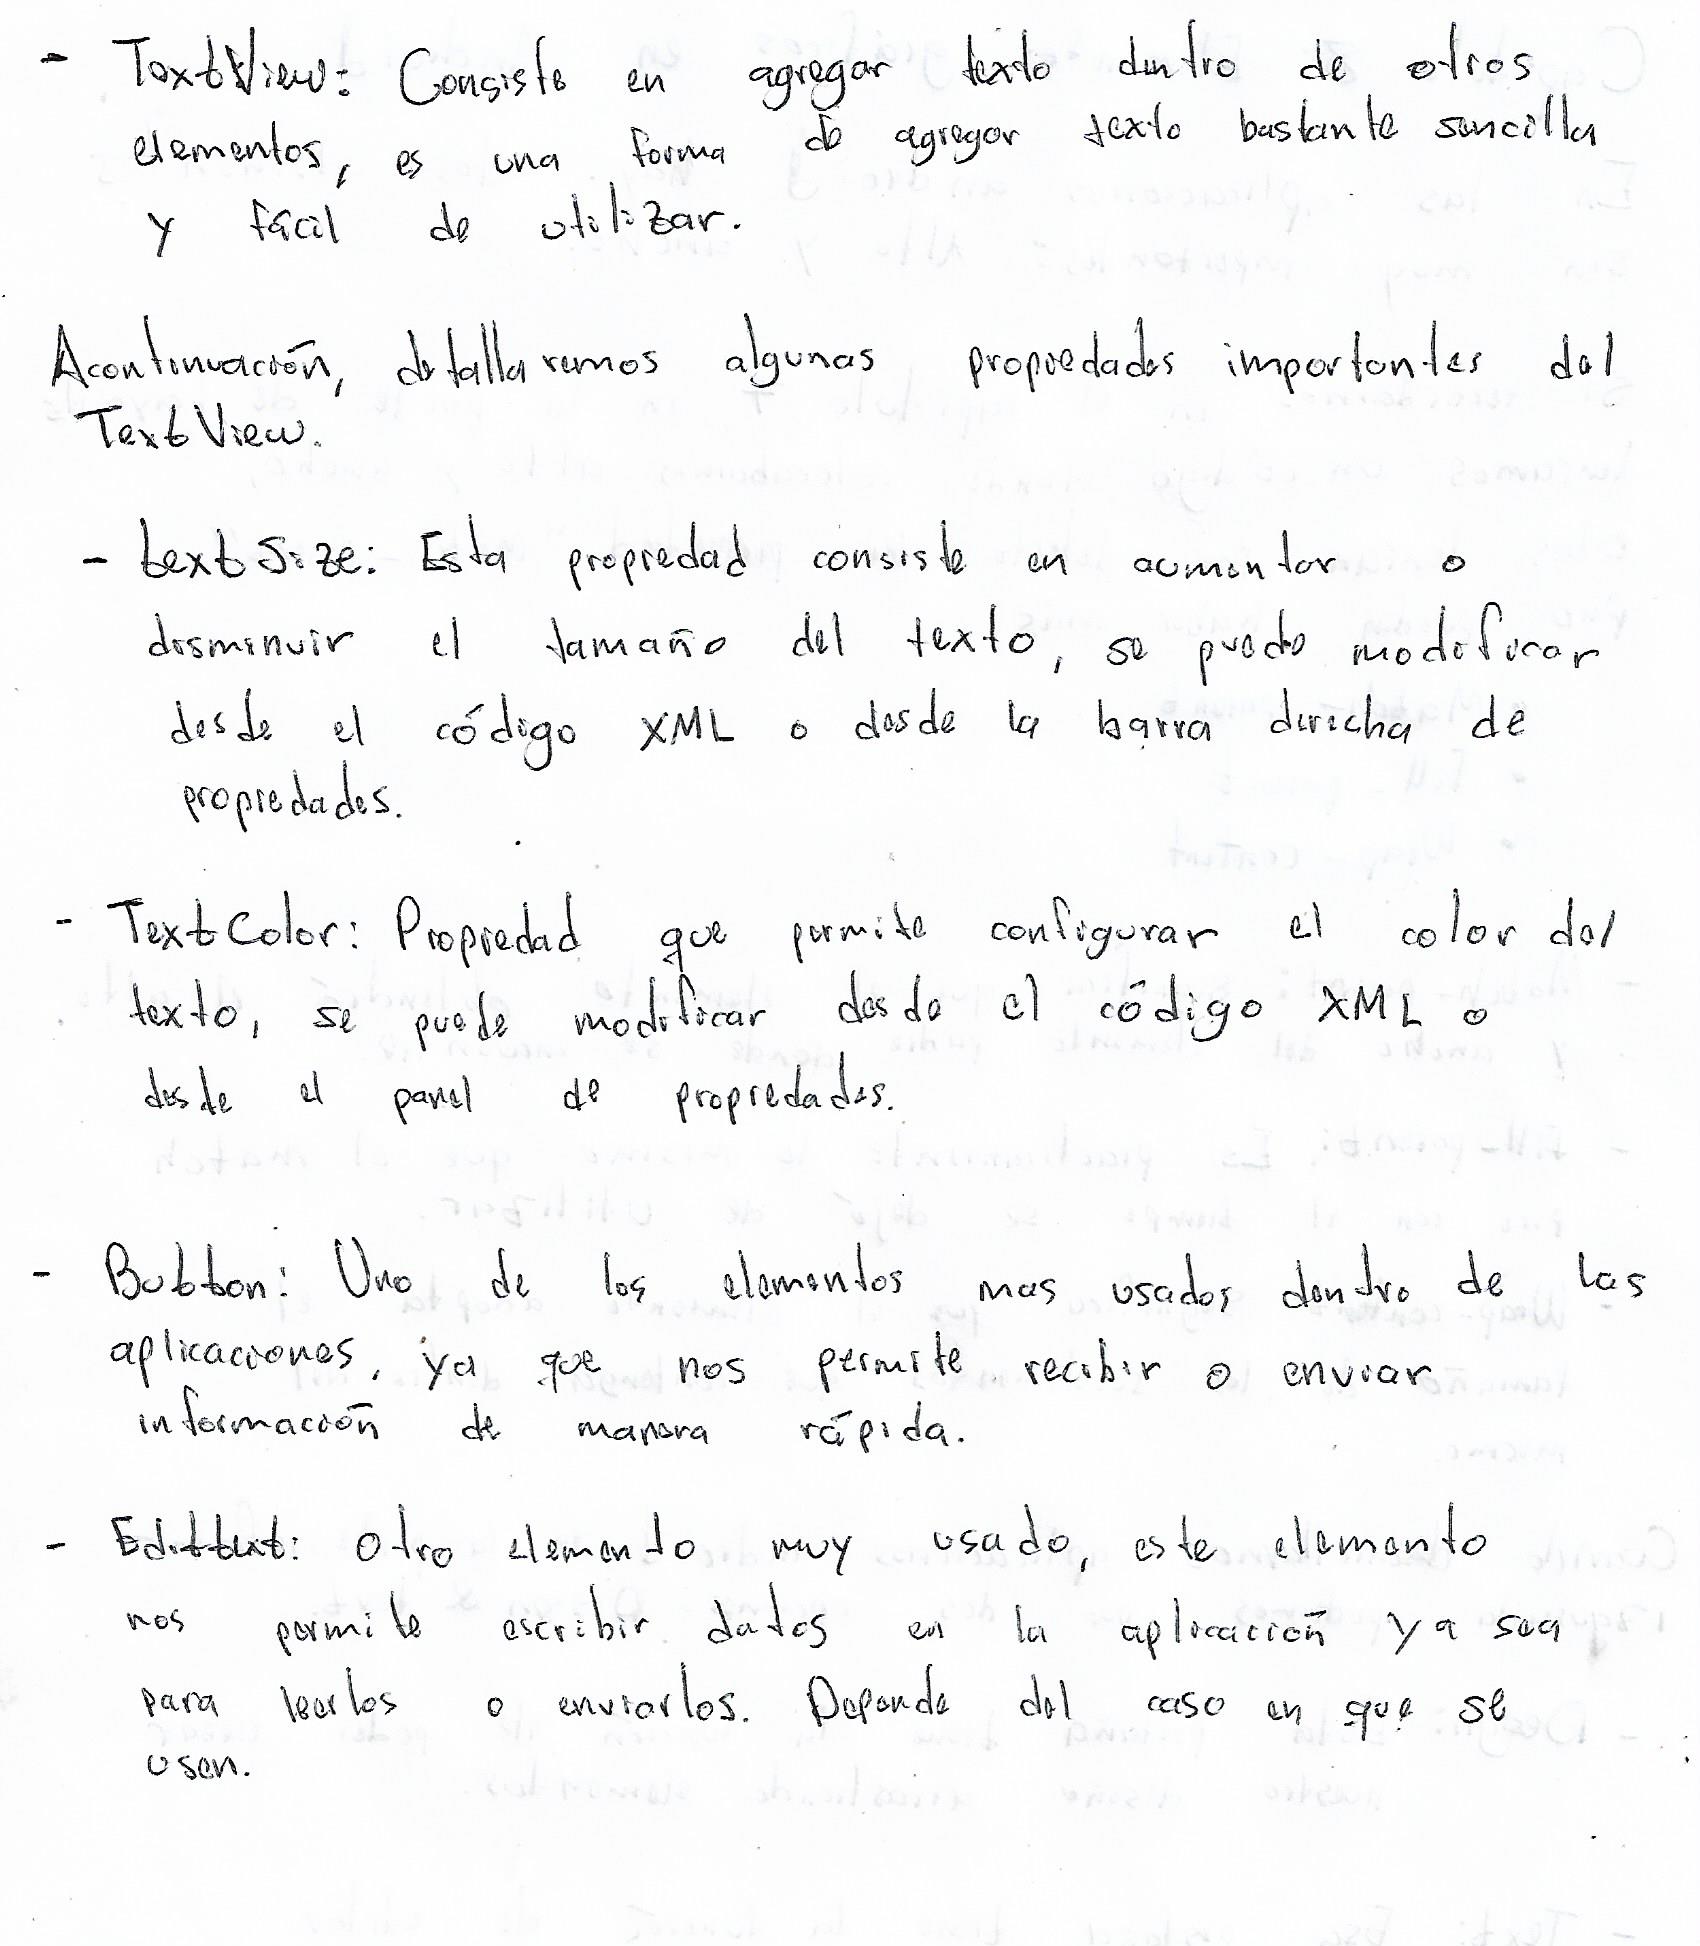 - TextView: Consiste en agregar texto dentro de otros
elementos, es una forma de agregar texto bastante sencilla
y fácil de utilizar.
Acontinuación, detallaremos algunas propiedades importantes del
TextView.
- textSize: Esta propiedad consiste en aumentar o
disminuir el tamaño del texto, se puede modificar
desde el código XML o desde la barra derecha de
propiedades.
- TextColor: Propiedad que permite configurar el color del
texto, se puede modificar desde el código XML o
desde el panel de propiedades.
- Button: Uno de los elementos mas usados dentro de las
aplicaciones, ya que nos permite recibir o enviar
información de manera rápida.
- Edittext: Otro elemento muy usado, este elemento
nos permite escribir datos en la aplicación ya sea
para leerlos o enviarlos. Depende del caso en que se
usen.